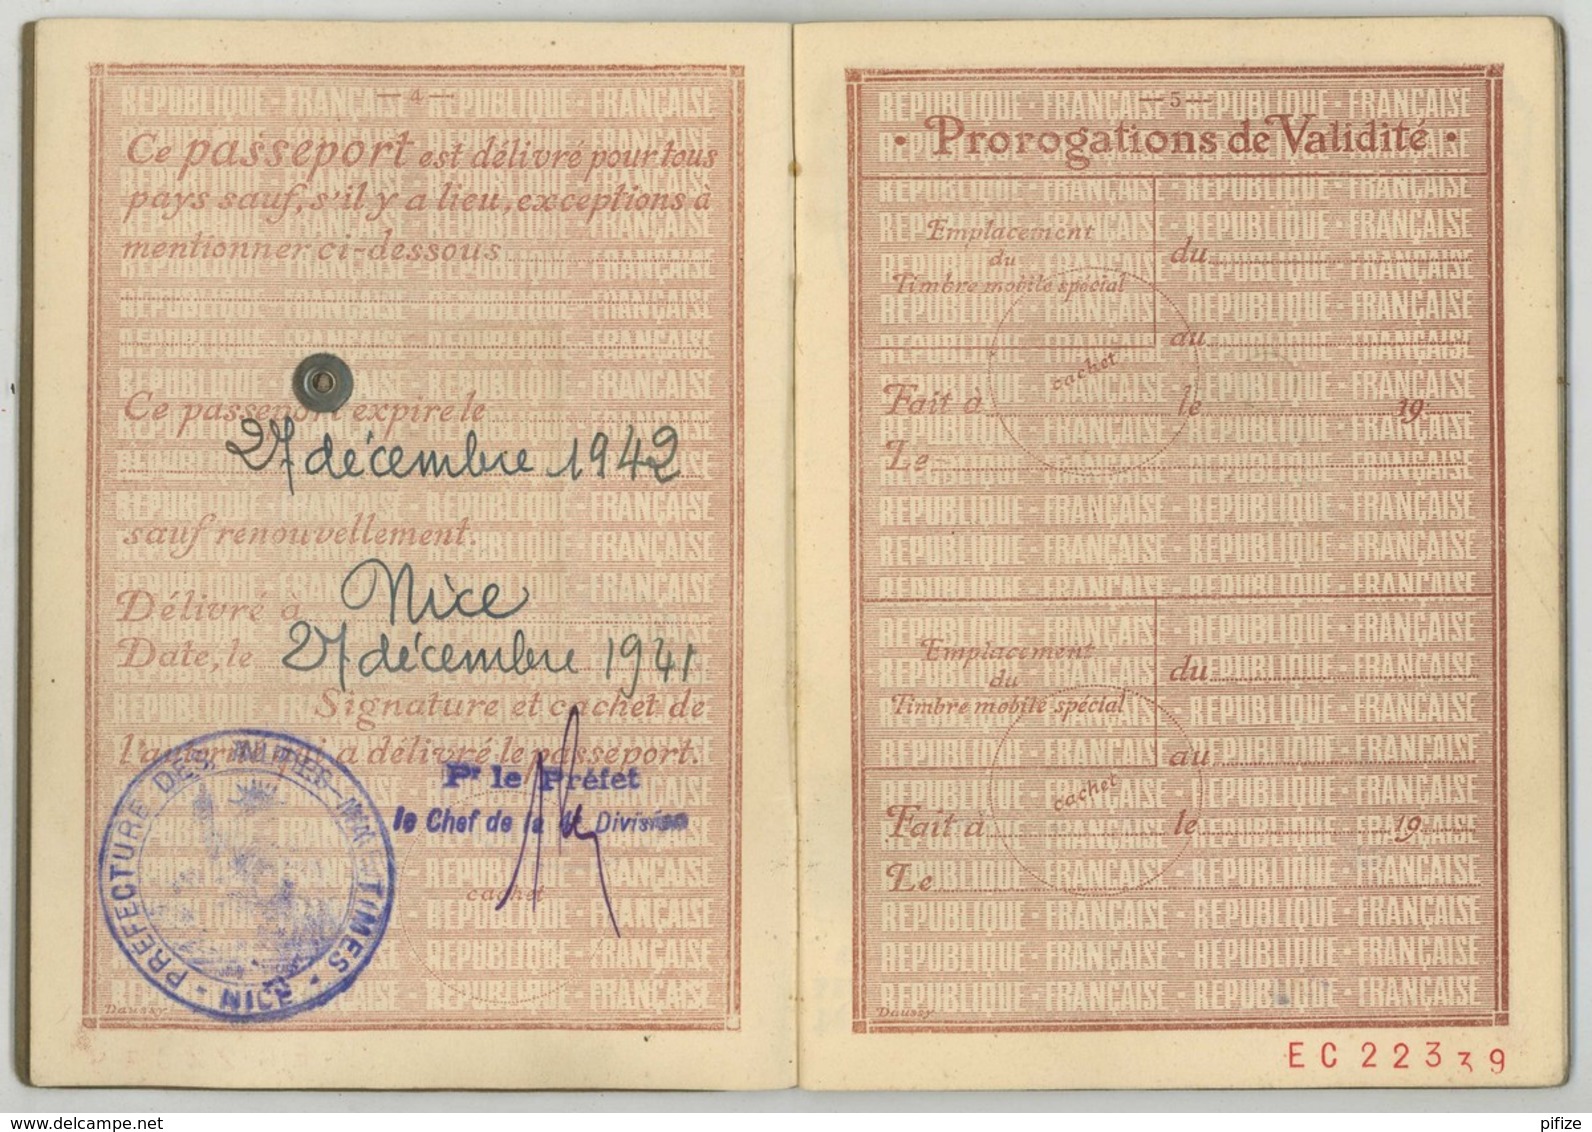 — 4 —
Ce passeport est délivré pour tous
pays sauf, s'il y a lieu, exceptions à
mentionner ci-dessous
Ce passeport expire le
27 décembre 1942
sauf renouvellement.
Délivré à Nice
Date, le 27 décembre 1941
Signature et cachet de
l'autorité qui a délivré le passeport.
Pr le Préfet
le Chef de la Division
cachet
PRÉFECTURE DES ALPES-MARITIMES - NICE
Daussy
— 5 —
• Prorogations de Validité •
Emplacement
du
Timbre mobile spécial
du
au
cachet
Fait à le 19
Le
Emplacement
du
Timbre mobile spécial
du
au
cachet
Fait à le 19
Le
RÉPUBLIQUE - FRANÇAISE - RÉPUBLIQUE - FRANÇAISE
Daussy
EC22339
delcampe.net
pifize